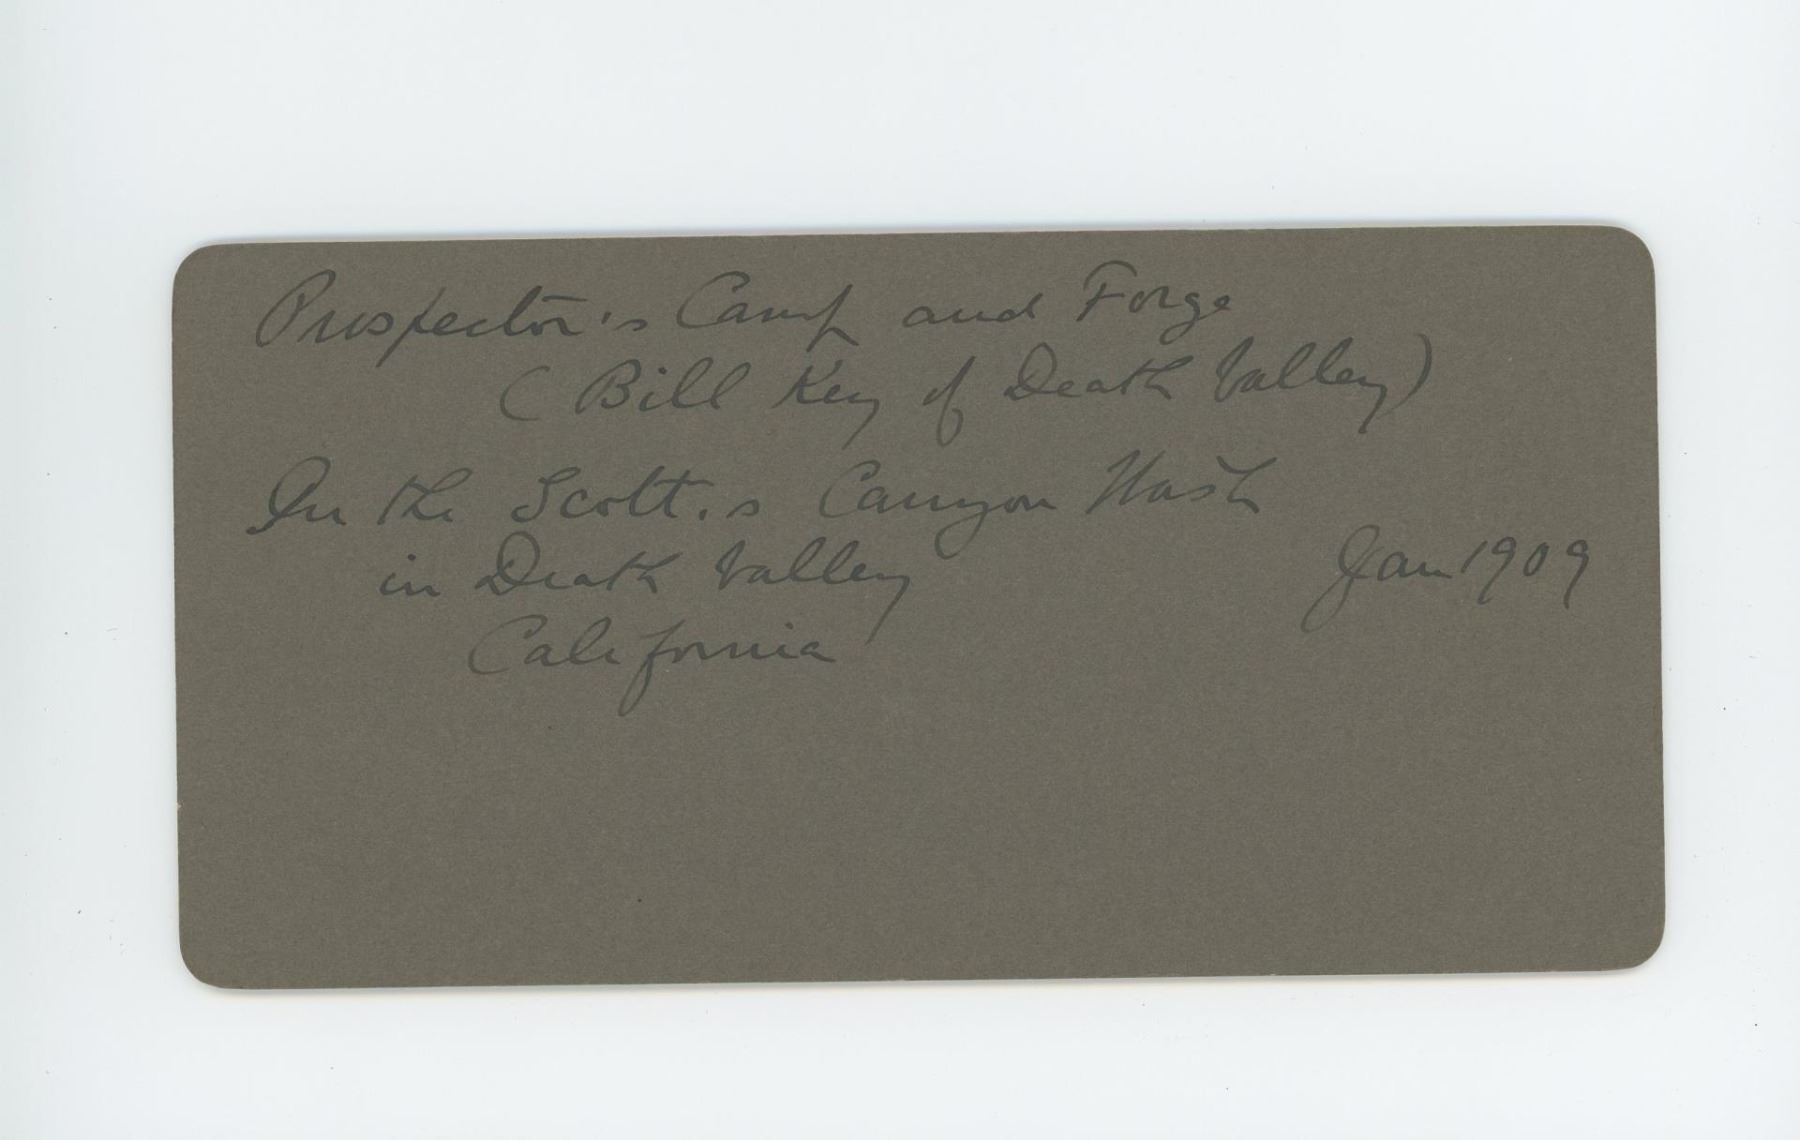 Prospector's Camp and Forge
(Bill Key of Death Valley)
In the Scott's Canyon Wash
in Death Valley
Jan 1909
California